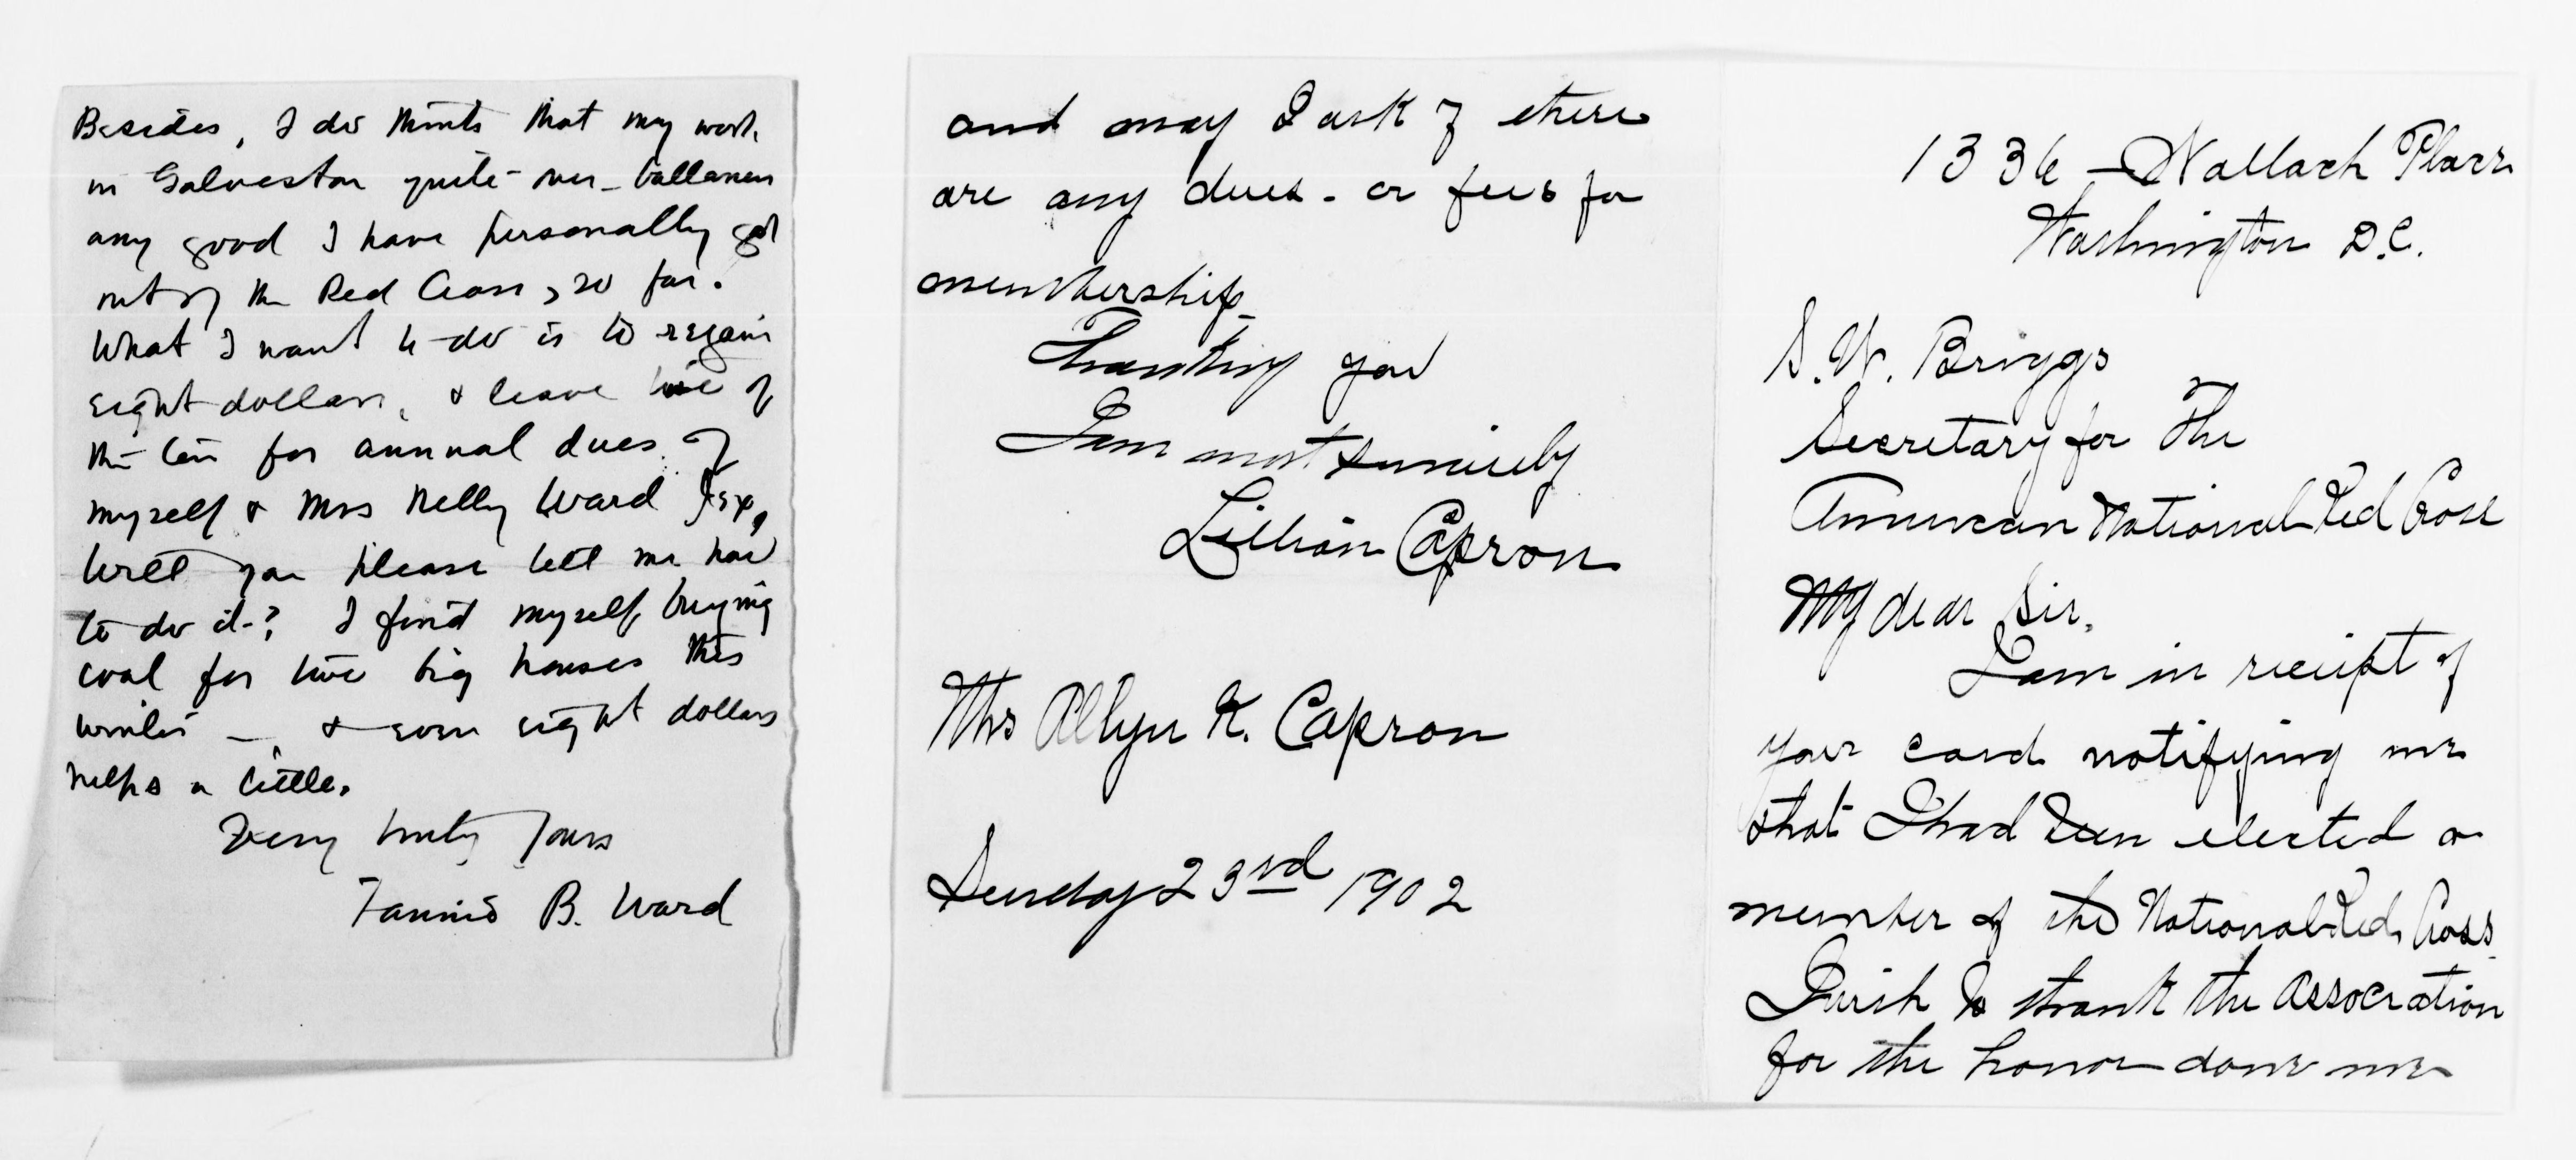 Besides, I do think that my work
in Galveston quite over-ballances
any good I have personally got
out of the Red Cross, so far.
What I want to do is to regain
eight dollars, & leave two of
the ten for annual dues of
myself & Mrs Nelly Ward
Will you please tell me how
to do it? I find myself buying
coal for two big houses this
winter — & even eight dollars
helps a little.
Very truly Yours
Fannie B. Ward
and may I ask if there
are any dues - or fees for
membership
Thanking you
I am most sincerely
Lillian Capron
Mrs Allyn K. Capron
Sunday 23rd 1902
1336 - Wallach Place
Washington D.C.
S. W. Briggs
Secretary for The
American National Red Cross
My dear Sir.
I am in receipt of
your card notifying me
that I had been elected a
member of the National Red Cross
I wish to thank the Association
for the honor done me